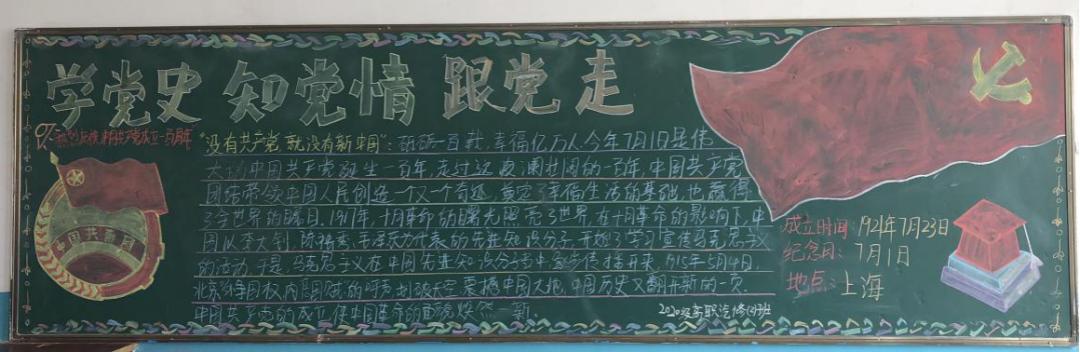 学党史 知党情 跟党走
热烈庆祝中国共产党成立一百周年
"没有共产党,就没有新中国":砥砺一百载,幸福亿万人今年7月1日是伟
大的中国共产党诞生一百年,走过这波澜壮阔的一百年,中国共产党
团结带领中国人民创造一个又一个奇迹,奠定了幸福生活的基础,也赢得
了全世界的瞩目,1917年,十月革命的曙光照亮了世界,在十月革命的影响下,中
国以李大钊,陈独秀,毛泽东为代表的先进知识分子,开始了学习宣传马克思主义
的活动,于是,马克思主义在中国先进知识分子中宣传播开来,1915年5月4日,
北京 国权,内 国贼的呼声划破天空震撼中国大地,中国历史又翻开新的一页,
中国共产党的成立使中国革命的面貌焕然一新.
2020级高职汽修(4)班
中国共青团
成立时间:1921年7月23日
纪念日:7月1日
地点:上海